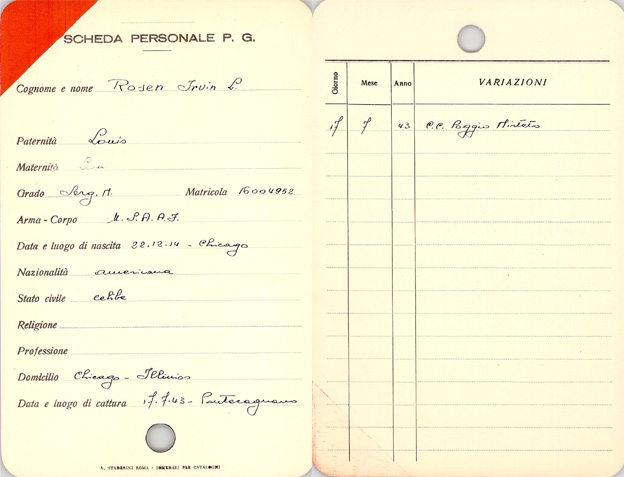 SCHEDA PERSONALE P. G.
Cognome e nome Rosen Irvin L.
Paternità Louis
Maternità
Grado Serg. M. Matricola 16004952
Arma - Corpo U.S.A.A.F.
Data e luogo di nascita 22.12.14 - Chicago
Nazionalità americana
Stato civile celibe
Religione
Professione
Domicilio Chicago - Illinois
Data e luogo di cattura 17.7.43 - Pontecagnano
A. STADERINI ROMA - IMMERZI PER CATALOGHI
Giorno Mese Anno VARIAZIONI
17 7 43 C.C. Poggio Mirteto